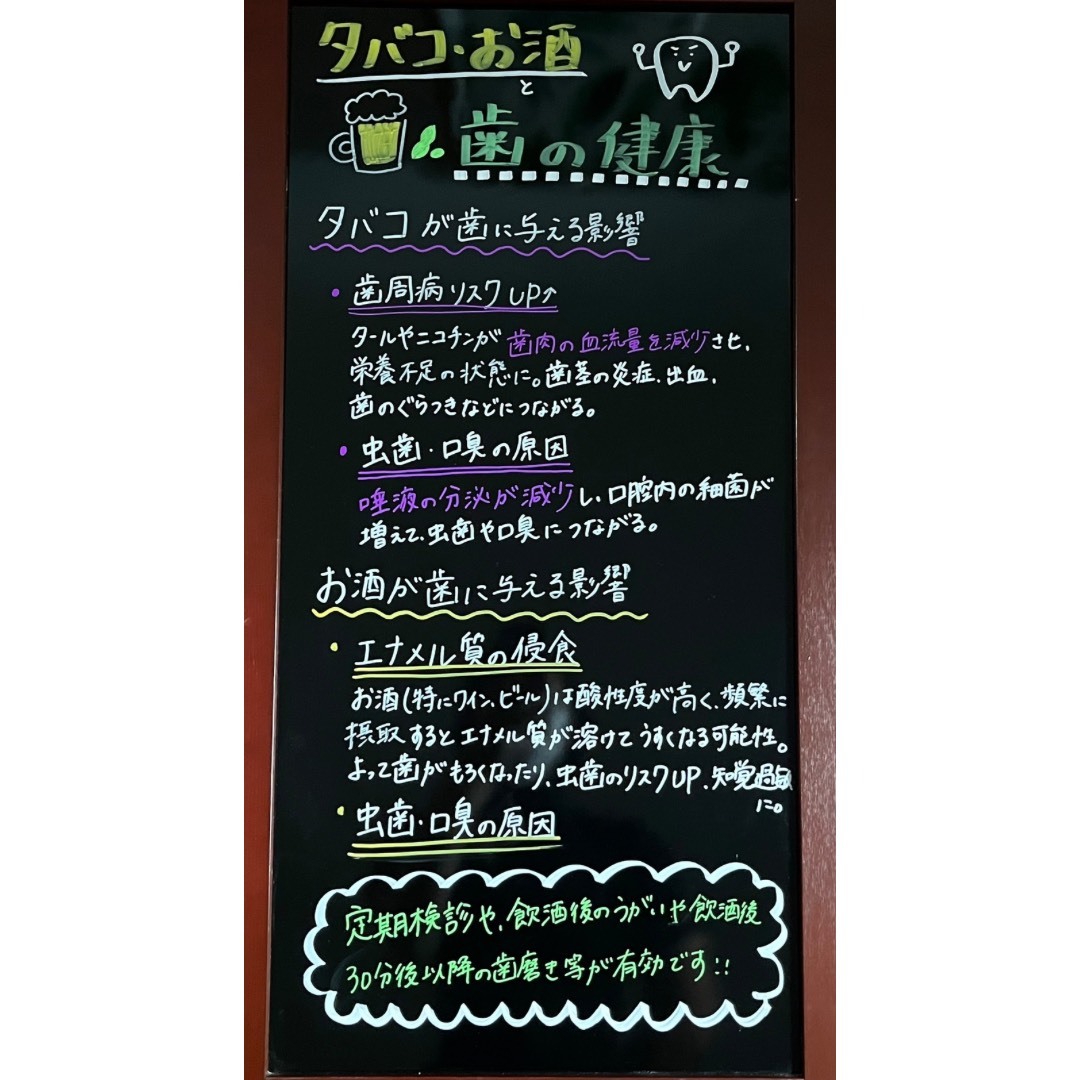 タバコ・お酒
と
歯の健康
タバコが歯に与える影響
・歯周病リスクUP↑
タールやニコチンが歯肉の血流量を減少させ、
栄養不足の状態に。歯茎の炎症、出血、
歯のぐらつきなどにつながる。
・虫歯・口臭の原因
唾液の分泌が減少し、口腔内の細菌が
増えて、虫歯や口臭につながる。
お酒が歯に与える影響
・エナメル質の侵食
お酒(特にワイン、ビール)は酸性度が高く、頻繁に
摂取するとエナメル質が溶けてうすくなる可能性。
よって歯がもろくなったり、虫歯のリスクUP、知覚過敏
に。
・虫歯・口臭の原因
定期検診や、飲酒後のうがいや飲酒後
30分後以降の歯磨き等が有効です!!